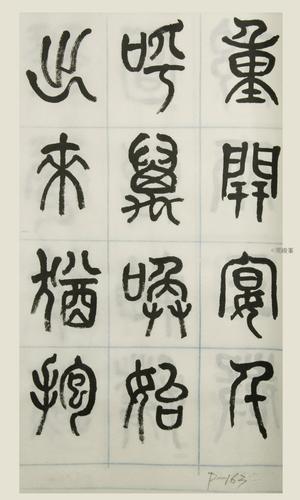 重開宴千
呼萬喚始
出來猶抱
P-163